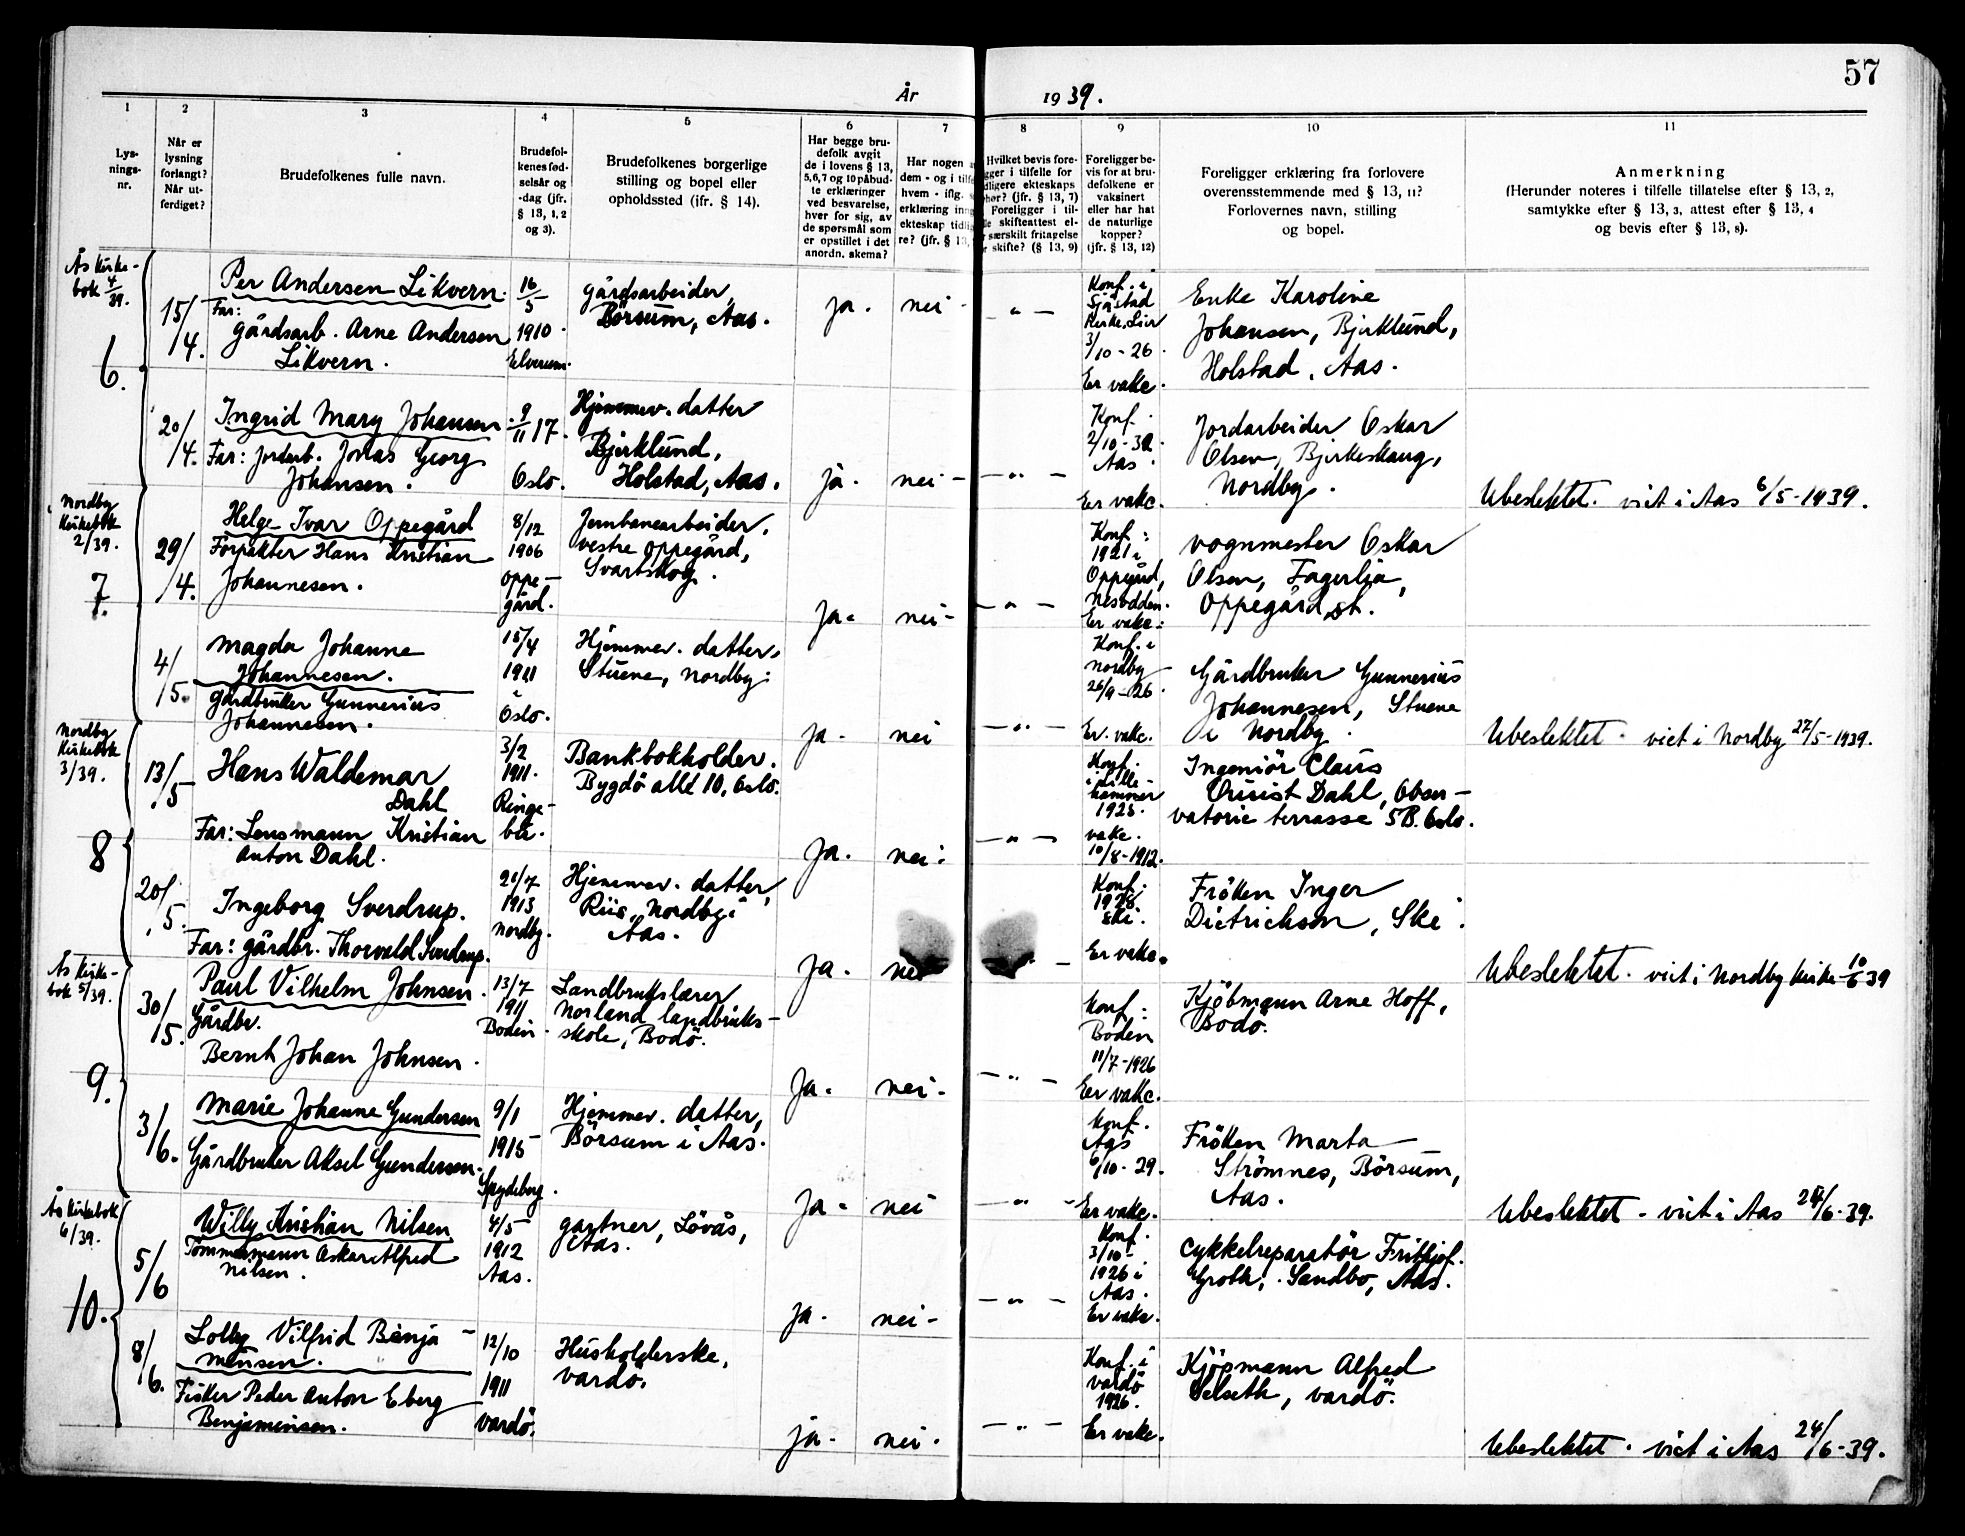 57
År 1939.
1 2 3 4 5 6 7 8 9 10 11
Lys-
nings-
nr.
Når er
lysning
forlangt?
Når ut-
ferdiget?
Brudefolkenes fulle navn.
Brudefol-
kenes fød-
selsår og
-dag (jfr.
§ 13, 1, 2
og 3).
Brudefolkenes borgerlige
stilling og bopel eller
opholdssted (ifr. § 14).
Har begge bru-
defolk avgit
de i lovens § 13,
5, 6, 7 og 10 påbud-
te erklæringer
ved besvarelse,
hver for sig, av
de spørsmål som
er opstillet i det
anordn. skema?
Har nogen
dem - og i tilfe
hvem - iflg.
erklæring inng
ekteskap tidlig
re? (jfr. § 13,
Hvilket bevis fore-
gger i tilfelle for
dligere ekteskaps
phør? (jfr. § 13, 7)
Foreligger i til-
le skifteattest el-
særskilt fritagelse
r skifte? (§ 13, 9)
Foreligger be-
vis for at bru-
defolkene er
vaksinert
eller har hat
de naturlige
kopper?
(jfr. § 13, 12)
Foreligger erklæring fra forlovere
overensstemmende med § 13, 11?
Forlovernes navn, stilling
og bopel.
Anmerkning
(Herunder noteres i tilfelle tillatelse efter § 13, 2,
samtykke efter § 13, 3, attest efter § 13, 4
og bevis efter § 13, 8).
Ås kirke-
bok 4/39.
6.
15/4.
Per Andersen Likvern.
Far:
gårdsarb. Arne Andersen
Likvern.
16/5
1910.
Elverum.
gårdsarbeider,
Börsum, Aas.
ja.
nei -
- " -
Konf. i
Sjåstad
Kirke, Lier
3/10-26.
Er vakc.
Enke Karoline
Johansen, Bjirklund,
Holstad, Aas.
20/4.
Ingrid Mary Johansen
Far: jordarb. Jonas Georg
Johansen.
9/11 17.
Oslo.
Hjemmev. datter
Bjirklund,
Holstad, Aas.
ja.
nei -
- " -
Konf.
2/10-32.
Aas.
Er vakc.
Jordarbeider Oskar
Olsen, Bjirkeskaug,
Nordby.
Ubeslektet. viet i Aas 6/5-1939.
Nordby
Kirkebok
2/39.
7.
29/4.
Helge Ivar Oppegård
Forpakter Hans Kristian
Johannesen.
8/12
1906
oppe-
gård.
Jernbanearbeider,
vestre oppegård,
Svartskog.
ja.
nei -
- " -
Konf:
1921 i
Oppegård,
Nesodden.
Er vakc.
vognmester Oskar
Olsen, Fagerlia,
Oppegård st.
4/5.
Magda Johanne
Johannesen.
gårdbruker Gunnerius
Johannesen.
15/4
1911
i
Oslo.
Hjemmev. datter,
Stuene, Nordby.
ja.
nei
- " -
Konf. i
Nordby
26/9-26.
Er. vakc.
Gårdbruker Gunnerius
Johannesen, Stuene
i Nordby.
Ubeslektet. viet i Nordby 27/5-1939.
Nordby
Kirkebok
3/39.
8
13/5
Hans Waldemar
Dahl
Far: Lensmann Kristian
Anton Dahl.
3/2
1911.
Ringe-
bu.
Bankbokholder.
Bygdö allé 10, Oslo.
ja.
nei.
- " -
Konf.
i Lille
hammer
1925.
vakc.
10/8-1912.
Ingeniör Claus
Quist Dahl, Obser-
vatorie terrasse 5B. Oslo.
20/5.
Ingeborg Sverdrup.
Far: gårdbr. Thorvald Sverdrup.
21/7
1913
Nordby.
Hjemmev. datter,
Riis, Nordby i
Aas.
ja.
nei
-
Konf.
1928
Ski.
Er vakc.
Fröken Inger
Dietrichson, Ski.
Ubeslektet. viet i Nordby kirke 10/6 39
Ås kirke-
bok 5/39.
9.
30/5.
Paul Vilhelm Johnsen.
Gårdbr.
Bernt Johan Johnsen.
13/7
1911
Bodin.
Landbrukslærer
Norland landbruks-
skole, Bodö.
ja.
nei.
- " -
Konf:
Boden
11/7-1926
Er vakc.
Kjöbmann Arne Hoff,
Bodö.
3/6.
Marie Johanne Gundersen
Gårdbruker Aksel Gundersen.
9/1
1915
Spydeberg.
Hjemmev. datter,
Börsum i Aas.
ja.
nei
- " -
Konf.
Aas
6/10-29.
Er vakc.
Fröken Marta
Strömnes, Börsum,
Aas.
Ubeslektet. viet i Aas 24/6-39.
Ås Kirkebok
6/39.
10.
5/6
Willy Kristian Nilsen
Tömmermann Oskar Alfred
Nilsen.
4/5
1912
Aas.
gartner, Lövås,
Aas.
ja.
nei -
- " -
Konf.
3/10-
1926 i
Aas.
Er vakc.
Cykkelreparatör Frithjof
Groth, Sandbo, Aas.
8/6.
Solby Vilfrid Benja-
minsen.
Fisker Peder Anton Eberg
Benjaminsen.
12/10
1911
Vardö.
Husholderske,
Vardö.
ja.
nei.
- " -
Konf. i
Vardö
1926.
Er vakc.
Kjöpmann Alfred
Selseth, Vardö.
Ubeslektet. viet i Aas 24/6-39.